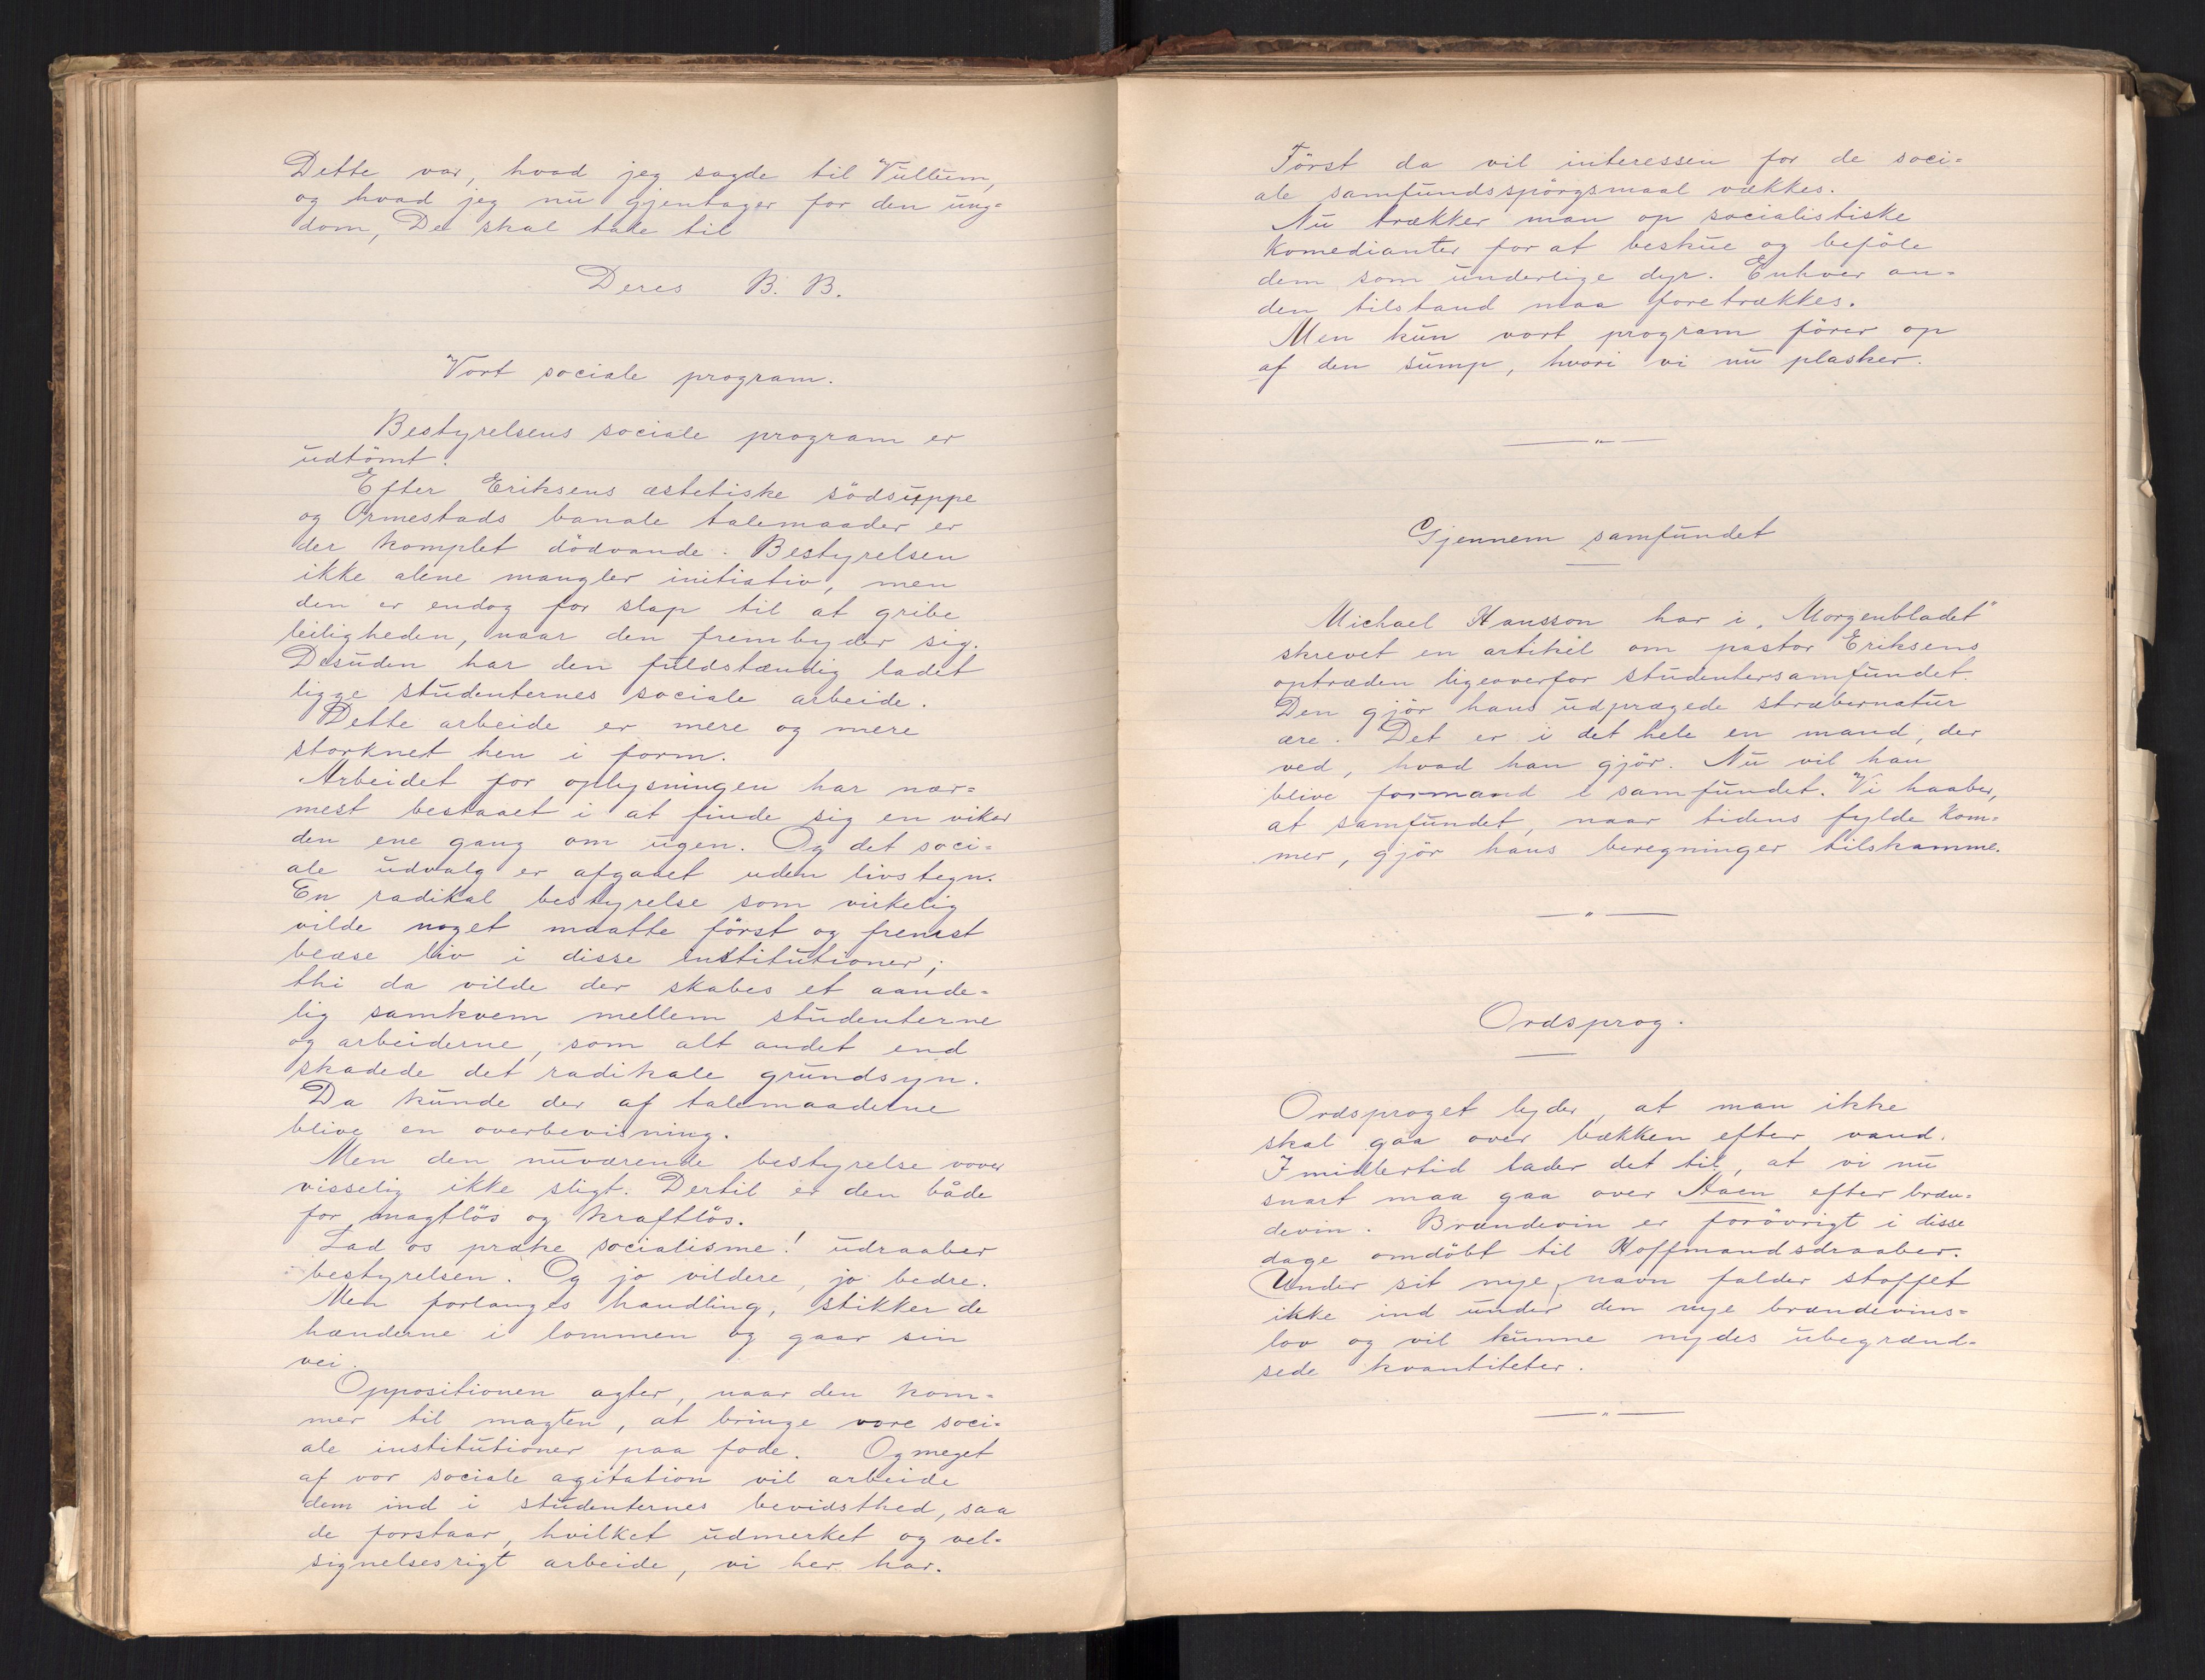 Dette var, hvad jeg sagde til Vullum,
og hvad jeg nu gjentager for den ung=
dom, De skal tale til
Deres B. B.
Vort sociale program.
Bestyrelsens sociale program er
udtömt.
Efter Eriksens æstetiske södsuppe
og Ormestads banale talemaader er
der komplet dödvande. Bestyrelsen
ikke alene mangler initiativ, men
den er endog for slap til at gribe
leiligheden, naar den frembyder sig.
Desuden har den fuldstændig ladet
ligge studenternes sociale arbeide.
Dette arbeide er mere og mere
storknet hen i form.
Arbeidet for oplysningen har nær=
mest bestaaet i at finde sig en vikar
den ene gang om ugen. Og det soci=
ale udvalg er afgaaet uden livstegn.
En radikal bestyrelse som virkelig
vilde noget maatte först og fremst
blæse liv i disse institutioner;
thi da vilde der skabes et aande=
lig samkvem mellem studenterne
og arbeiderne, som alt andet end
skadede det radikale grundsyn.
Da kunde der af talemaaderne
blive en overbevisning.
Men den nuværende bestyrelse vover
visselig ikke sligt. Dertil er den både
for magtlös og kraftlös.
Lad os præke socialisme! udraaber
bestyrelsen. Og jo vildere, jo bedre.
Men forlanges handling, stikker de
hænderne i lommen og gaar sin
vei.
Oppositionen agter, naar den kom=
mer til magten, at bringe vore soci=
ale institutioner paa fode. Og meget
af vor sociale agitation vil arbeide
dem ind i studenternes bevidsthed, saa
de forstaar, hvilket udmerket og vel=
signelsesrigt arbeide, vi her har.
Först da vil interessen for de soci=
ale samfundsspörgsmaal vækkes.
Nu trækker man op socialistiske
Komedianter for at beskue og beföle
dem som underlige dyr. Enhver an=
den tilstand maa foretrækkes.
Men kun vort program förer op
af den sump, hvori vi nu plasker.
Gjennem samfundet
Michael Hansson har i "Morgenbladet"
skrevet en artikel om pastor Eriksens
optræden ligeoverfor studentersamfundet.
Den gjör hans udprægede stræbernatur
ære. Det er i det hele en mand, der
ved, hvad han gjör. Nu vil han
blive formand i samfundet. Vi haaber,
at samfundet, naar tidens fylde kom=
mer, gjör hans beregninger tilskamme.
Ordsprog.
Ordsproget lyder, at man ikke
skal gaa over bækken efter vand.
Imidlertid lader det til, at vi nu
snart maa gaa over Aaen efter bræn=
devin. Brændevin er forövrigt i disse
dage omdöbt til Hoffmandsdraaber.
Under sit nye navn falder stoffet
ikke ind under den nye brændevins=
lov og vil kunne nydes ubegrænd=
sede kvantiteter.